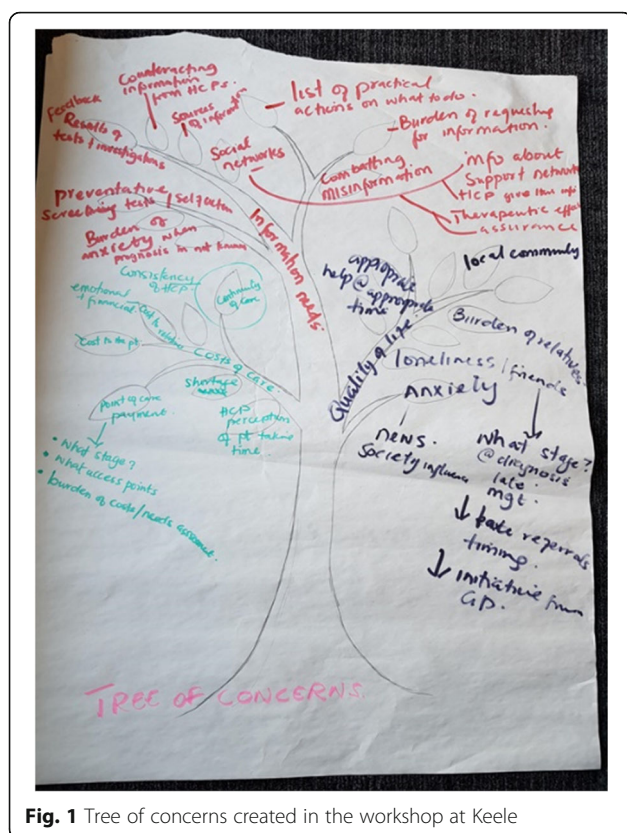 Counteracting
information
from HCPs.
Feedback
Results of
tests & investigations
Sources
of information
Social
networks
list of practical
actions on what to do.
Burden of requesting
for information.
Combatting
misinformation
info about
Support network
HCP give
Therapeutic
assurance
Preventative
Screening tests /
Burden of
anxiety when
prognosis is not known
Information needs
Consistency
of HCP.
emotional
+ financial
Cost to relatives
Continuity
of care
Costs of care
Cost to the pt
Point of care
payment.
• What stage?
• What access points
• burden of costs/needs assessment.
Shortage
HCP
perception
of pt taking
time.
appropriate
help @ appropriate
time
local community
Quality of life
Burden of relatives
loneliness / friends
Anxiety
news.
Society influence
What stage?
@ diagnosis
late
mgt.
late referrals
timing.
initiative from
GP.
TREE OF CONCERNS.
Fig. 1 Tree of concerns created in the workshop at Keele